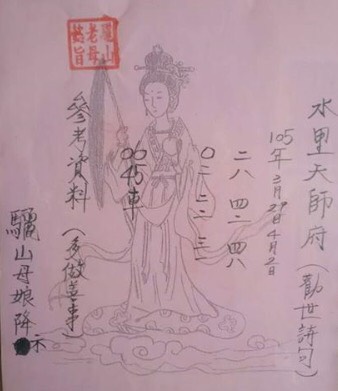 水里天師府(勸世詩句)
105年3月29日4月2日
二八 四二 四八
0二 二二 三一
0045車
參考資料(多做善事)
驪山母娘降示
驪山
老母
懿旨